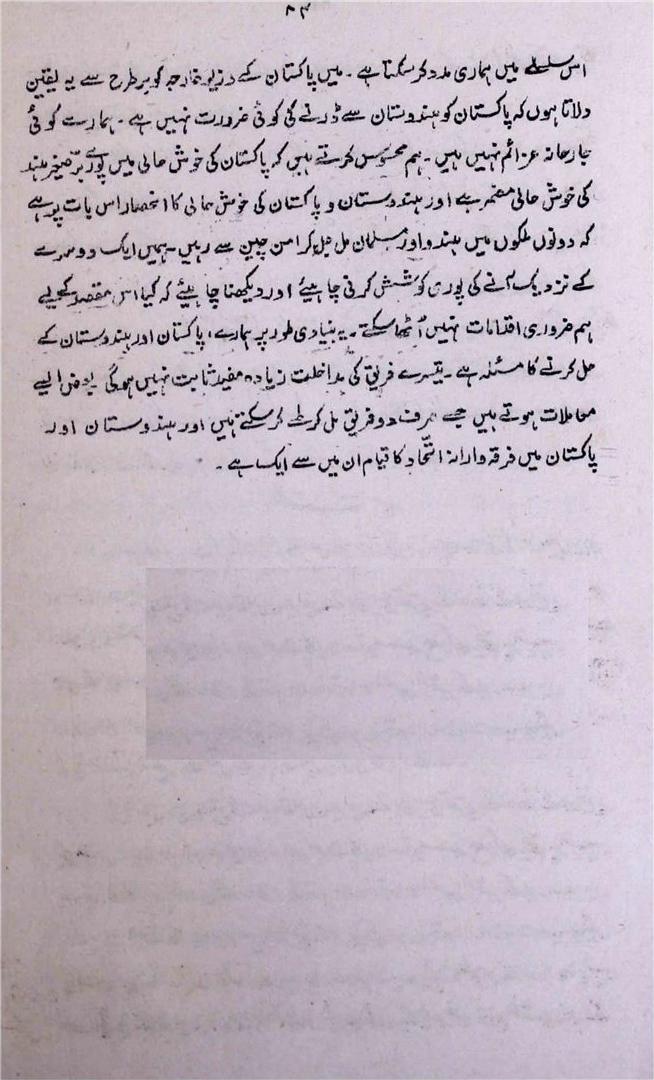 ۸۴
اس سلسلے میں ہماری مدد کر سکتا ہے ۔ میں پاکستان کے وزیر خارجہ کو ہر طرح سے یہ یقین
دلاتا ہوں کہ پاکستان کو ہندوستان سے ڈرنے کی کوئی ضرورت نہیں ہے ۔ ہمارے کوئی
جارحانہ عزائم نہیں ہیں ۔ ہم محسوس کرتے ہیں کہ پاکستان کی خوش حالی میں پورے برّصغیر ہند
کی خوش حالی مضمر ہے اور ہندوستان و پاکستان کی خوش حالی کا انحصار اس بات پر ہے
کہ دونوں ملکوں میں ہندو اور مسلمان مل جل کر امن چین سے رہیں ۔ ہمیں ایک دوسرے
کے نزدیک آنے کی پوری کوشش کرنی چاہیئے اور دیکھنا چاہیئے کہ کیا اس مقصد کے لیے
ہم ضروری اقدامات نہیں اُٹھا سکتے ۔ یہ بنیادی طور پر ہمارے، پاکستان اور ہندوستان کے
حل کرنے کا مسئلہ ہے ۔ تیسرے فریق کی مداخلت زیادہ مفید ثابت نہیں ہوگی بعض ایسے
معاملات ہوتے ہیں جسے صرف دو فریق مل کر طے کر سکتے ہیں اور ہندوستان اور
پاکستان میں فرقہ وارانہ اتّحاد کا قیام ان میں سے ایک ہے ۔